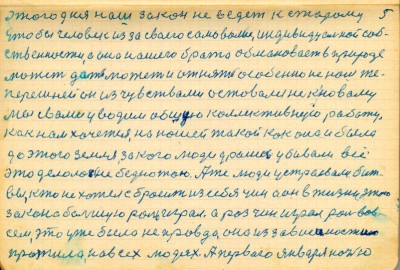 этого дня наш закон не ведет к старому 5
чтобы человек из за своего самоволие, индивидуалной соб-
ственности, а она нашего брата обмановает в природе
может дать может и отнять особенно не ном те-
перешней он из чувствами оставом не к новому
мы свами уводим общую коллективную работу,
как нам хочется, на нашей такой как она и была
до этого земля, за кого люди дрались убивали все
это делалося бедностью. А те люди устраевали бит-
вы, кто не хотел сбросить из себя чин а он в жизни этого
закона большую рол играл. а раз чин играл рол вов
сем, это уже было не правда, она из зависемости
пражила, на всех людях. А первого января ночью